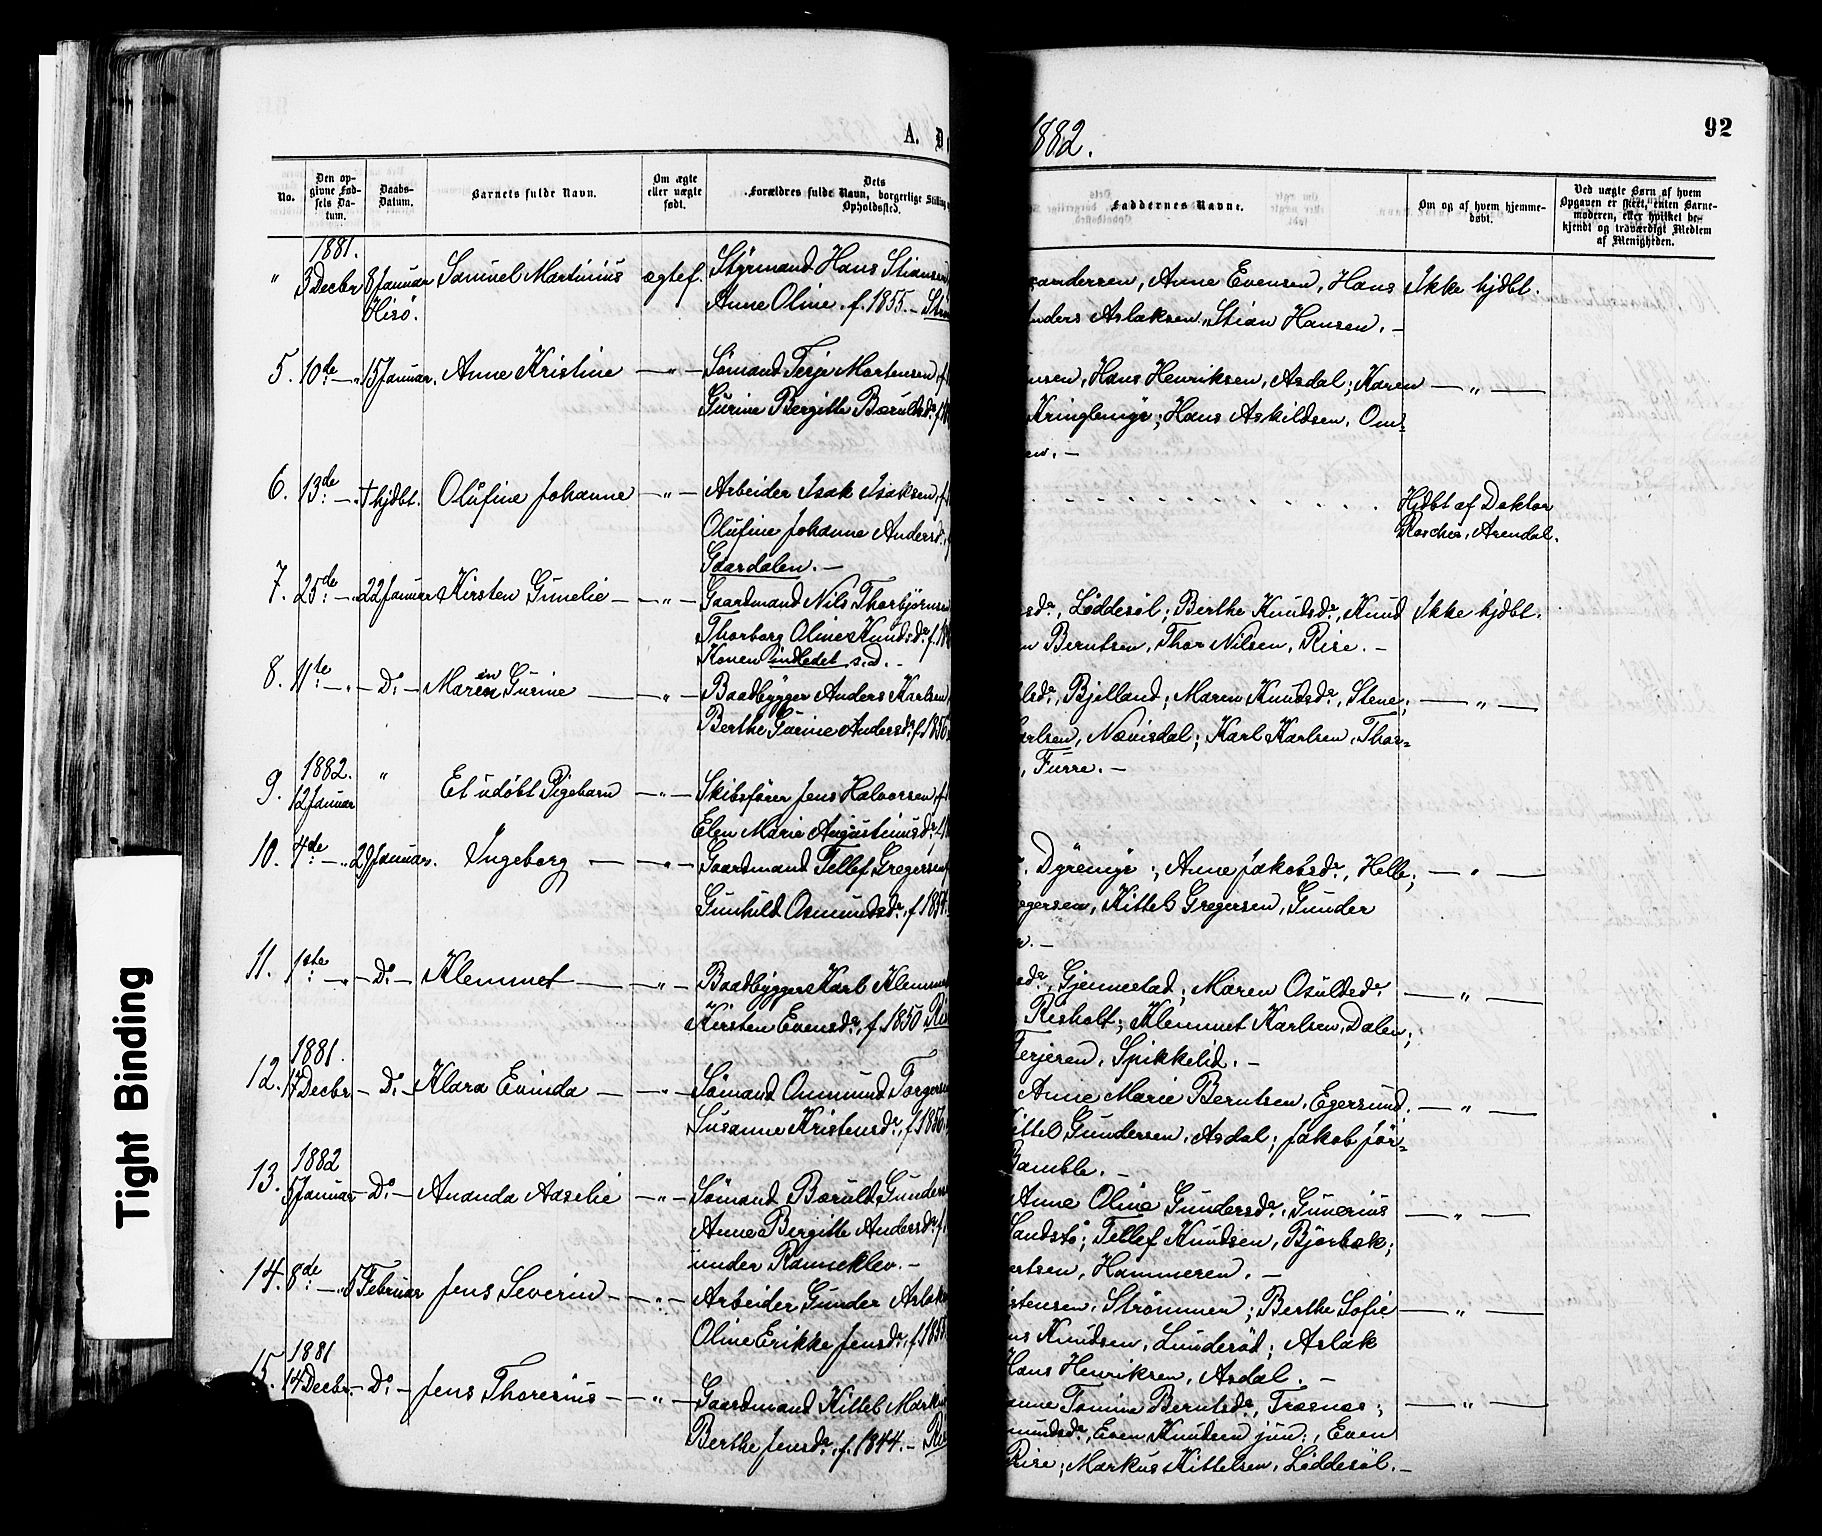 A. D
1882.
92
No.
Den op-
givne Fød-
sels Da-
tum.
Daabs-
Datum.
Barnets fulde Navn.
Om ægte
eller uægte
født.
Dets
Forældres fulde Navn, borgerlige Stilling
Opholdssted.
Faddernes Navne.
Om og af hvem hjemme-
døbt.
Ved uægte Børn af hvem
Opgaven er skeet, enten Barne-
moderen, eller hvilket be-
kjendt og troværdigt Medlem
af Menigheden.
1881.
" 3 Decbr 8 Januar Samuel Martinius ægtef. Styrmand Hans Stiansen
Hisø. Anne Oline f. 1855. –
andersen, Anne Evensen, Hans Ikke hjdbt.
Anders Aslaksen, Stian Hansen. –
5. 10de – " 15 Januar. Anne Kristine – " – Sømand Terje Mortensen, f.
Gurine Bergitte Børulfsdr.
nsen, Hans Henriksen, Asdal; Karen – " –
Kringlemyr; Hans Askildsen, Om-
en. –
6. 13de – " † hjdbt. Olufine Johanne – " – Arbeider Isak Isaksen, f.
Olufine Johanne Andersd.
Gaardalen. –
Hjdbt af Doktor
Roscher, Arendal.
7. 25de – " 22 Januar Kirsten Gunelie – " – Gaardmand Nils Thorbjørnsen
Thorborg Oline Knudsdr. f.
Konen indledet s. d. –
sdr, Løddesøl; Berthe Knudsdr, Knud Ikke hjdbt.
n Berntsen, Thor Nilsen, Rise. –
8. 11te – " – Do – Maren Gurine – " – Baadbygger Anders Karlsen,
Berthe Gurine Andersdr. f. 1856
lsdr, Bjelland; Maren Knudsdr, Stene; – " –
arlsen, Nævisdal; Karl Karlsen, Thor-
, Furre. –
9. 1882. 12 Januar " Et udøbt Pigebarn – " – Skibsfører Jens Halvorsen, f.
Elen Marie Augustinusdr.
10. 4de – " 29 Januar. Ingeborg – " – Gaardmand Tellef Gregersen
Gunhild Osmundsdr, f. 1854.
, Dyremyr; Anne Jakobsdr, Helle; – " –
egersen, Kittel Gregersen, Gunder
n. –
11. 1ste – " – Do – Klemmet – " – Baadbygger Karl Klemmet
Kirsten Evensdr, f. 1850
sdr, Gjennestad; Maren Osuldsdr. – " –
Risholt; Klemmet Karlsen, Dalen;
Terjesen, Spikkelid. –
1881.
12. 17 Decbr – Do – Klara Evinda – " – Sømand Osmund Torgersen
Susanne Kristensdr, f. 1856.
Anne Marie Berntsen, Egersund. – " –
Kittel Gundersen, Asdal; Jakob Jør-
Bamble. –
1882
13. 5 Januar – Do – Ananda Aaselie – " – Sømand Børuld Gunders
Anne Bergitte Andersdr. f.
under Ranneklev. –
Anne Oline Gundersdr, Gunerius – " –
Sandstø; Tellef Knudsen, Bjørbæk;
ertsen, Hammeren. –
14. 8de – " 5 Februar Jens Severin – " – Arbeider Gunder Aslaks
Oline Erikke Jensdr, f. 1855
stensen, Strømmen; Berthe Sofie – " –
ns Knudsen, Lunderød; Aslak
Hans Henriksen, Asdal. –
1881
15. 14 Decbr – Do – Jens Thoresius – " – Gaardmand Kittel Markus
Berthe Jensdr, f. 1844. –
anne Tomine Berntsdr, Træsnes; – " –
mundsdr, Even Knudsen jun:, Even
Rise; Markus Kittelsen, Løddesøl. –
Tight Binding